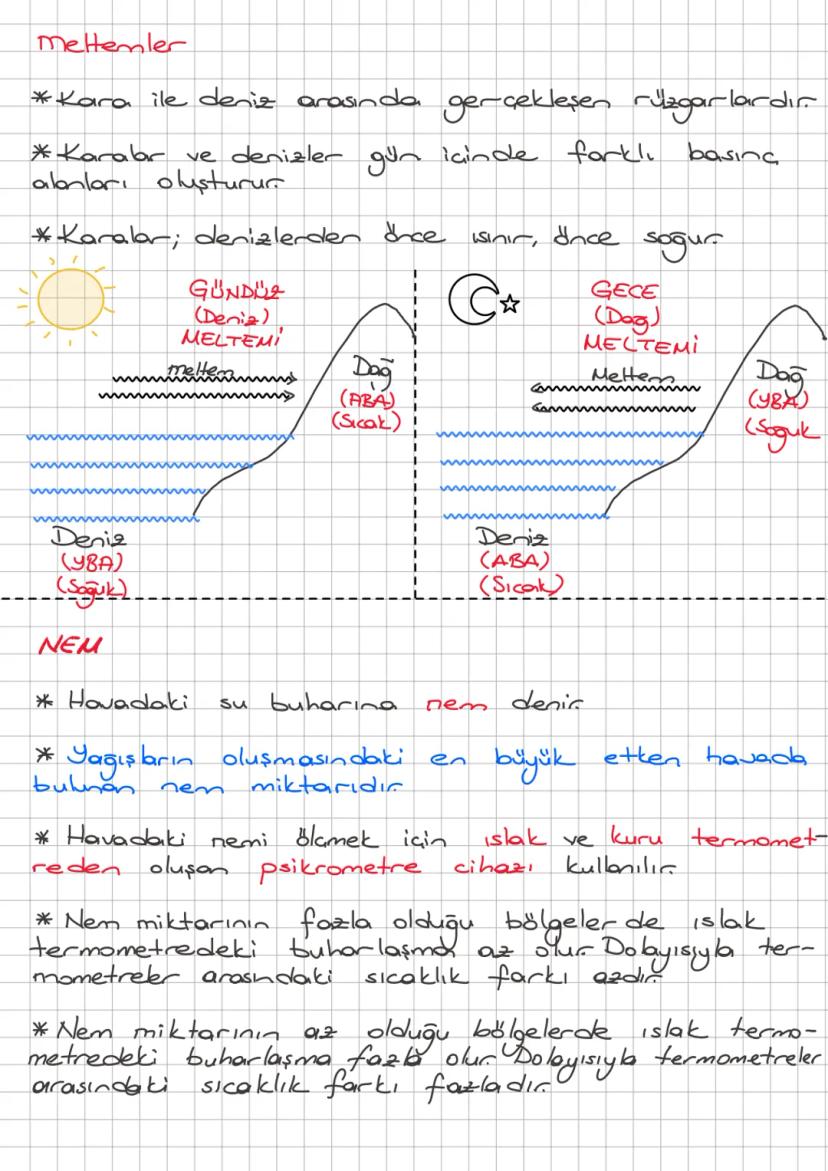 Meltemler
* Kara ile deniz arasında gerçekleşen rüzgarlardır.
* Karalar ve denizler gün içinde farklı basınç
alanları oluşturur.
* Karalar; denizlerden önce ısınır, önce soğur.
GÜNDÜZ
(Deniz)
MELTEMİ
meltem
Dağ
(ABA)
(Sıcak)
Deniz
(YBA)
(Soğuk)
GECE
(Dağ)
MELTEMİ
Meltem
Dağ
(YBA)
(Soğuk
Deniz
(ABA)
(Sıcak)
NEM
* Havadaki su buharına nem denir.
* Yağışların oluşmasındaki en büyük etken havada
bulunan nem miktarıdır.
* Havadaki nemi ölçmek için ıslak ve kuru termomet-
reden oluşan psikrometre cihazı kullanılır.
* Nem miktarının fazla olduğu bölgeler de ıslak
termometredeki buharlaşma az olur. Dolayısıyla ter-
mometreler arasındaki sıcaklık farkı azdır.
* Nem miktarının az olduğu bölgelerde ıslak termo-
metredeki buharlaşma fazla olur. Dolayısıyla termometreler
arasındaki sıcaklık farkı fazladır.